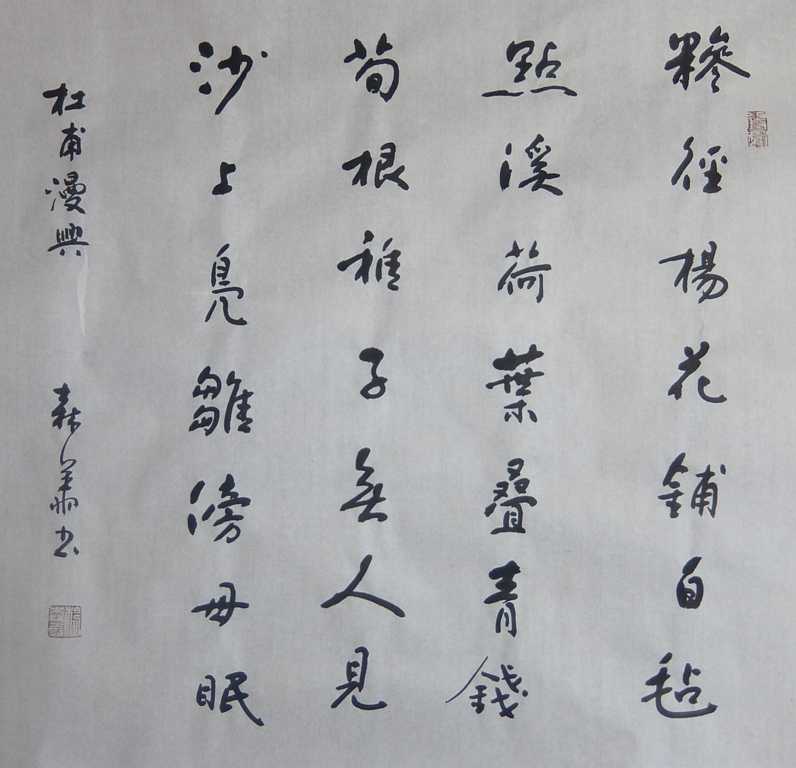 糝徑楊花鋪白毡
點溪荷葉疊青錢
筍根稚子無人見
沙上鳧雛傍母眠
杜甫漫興
书